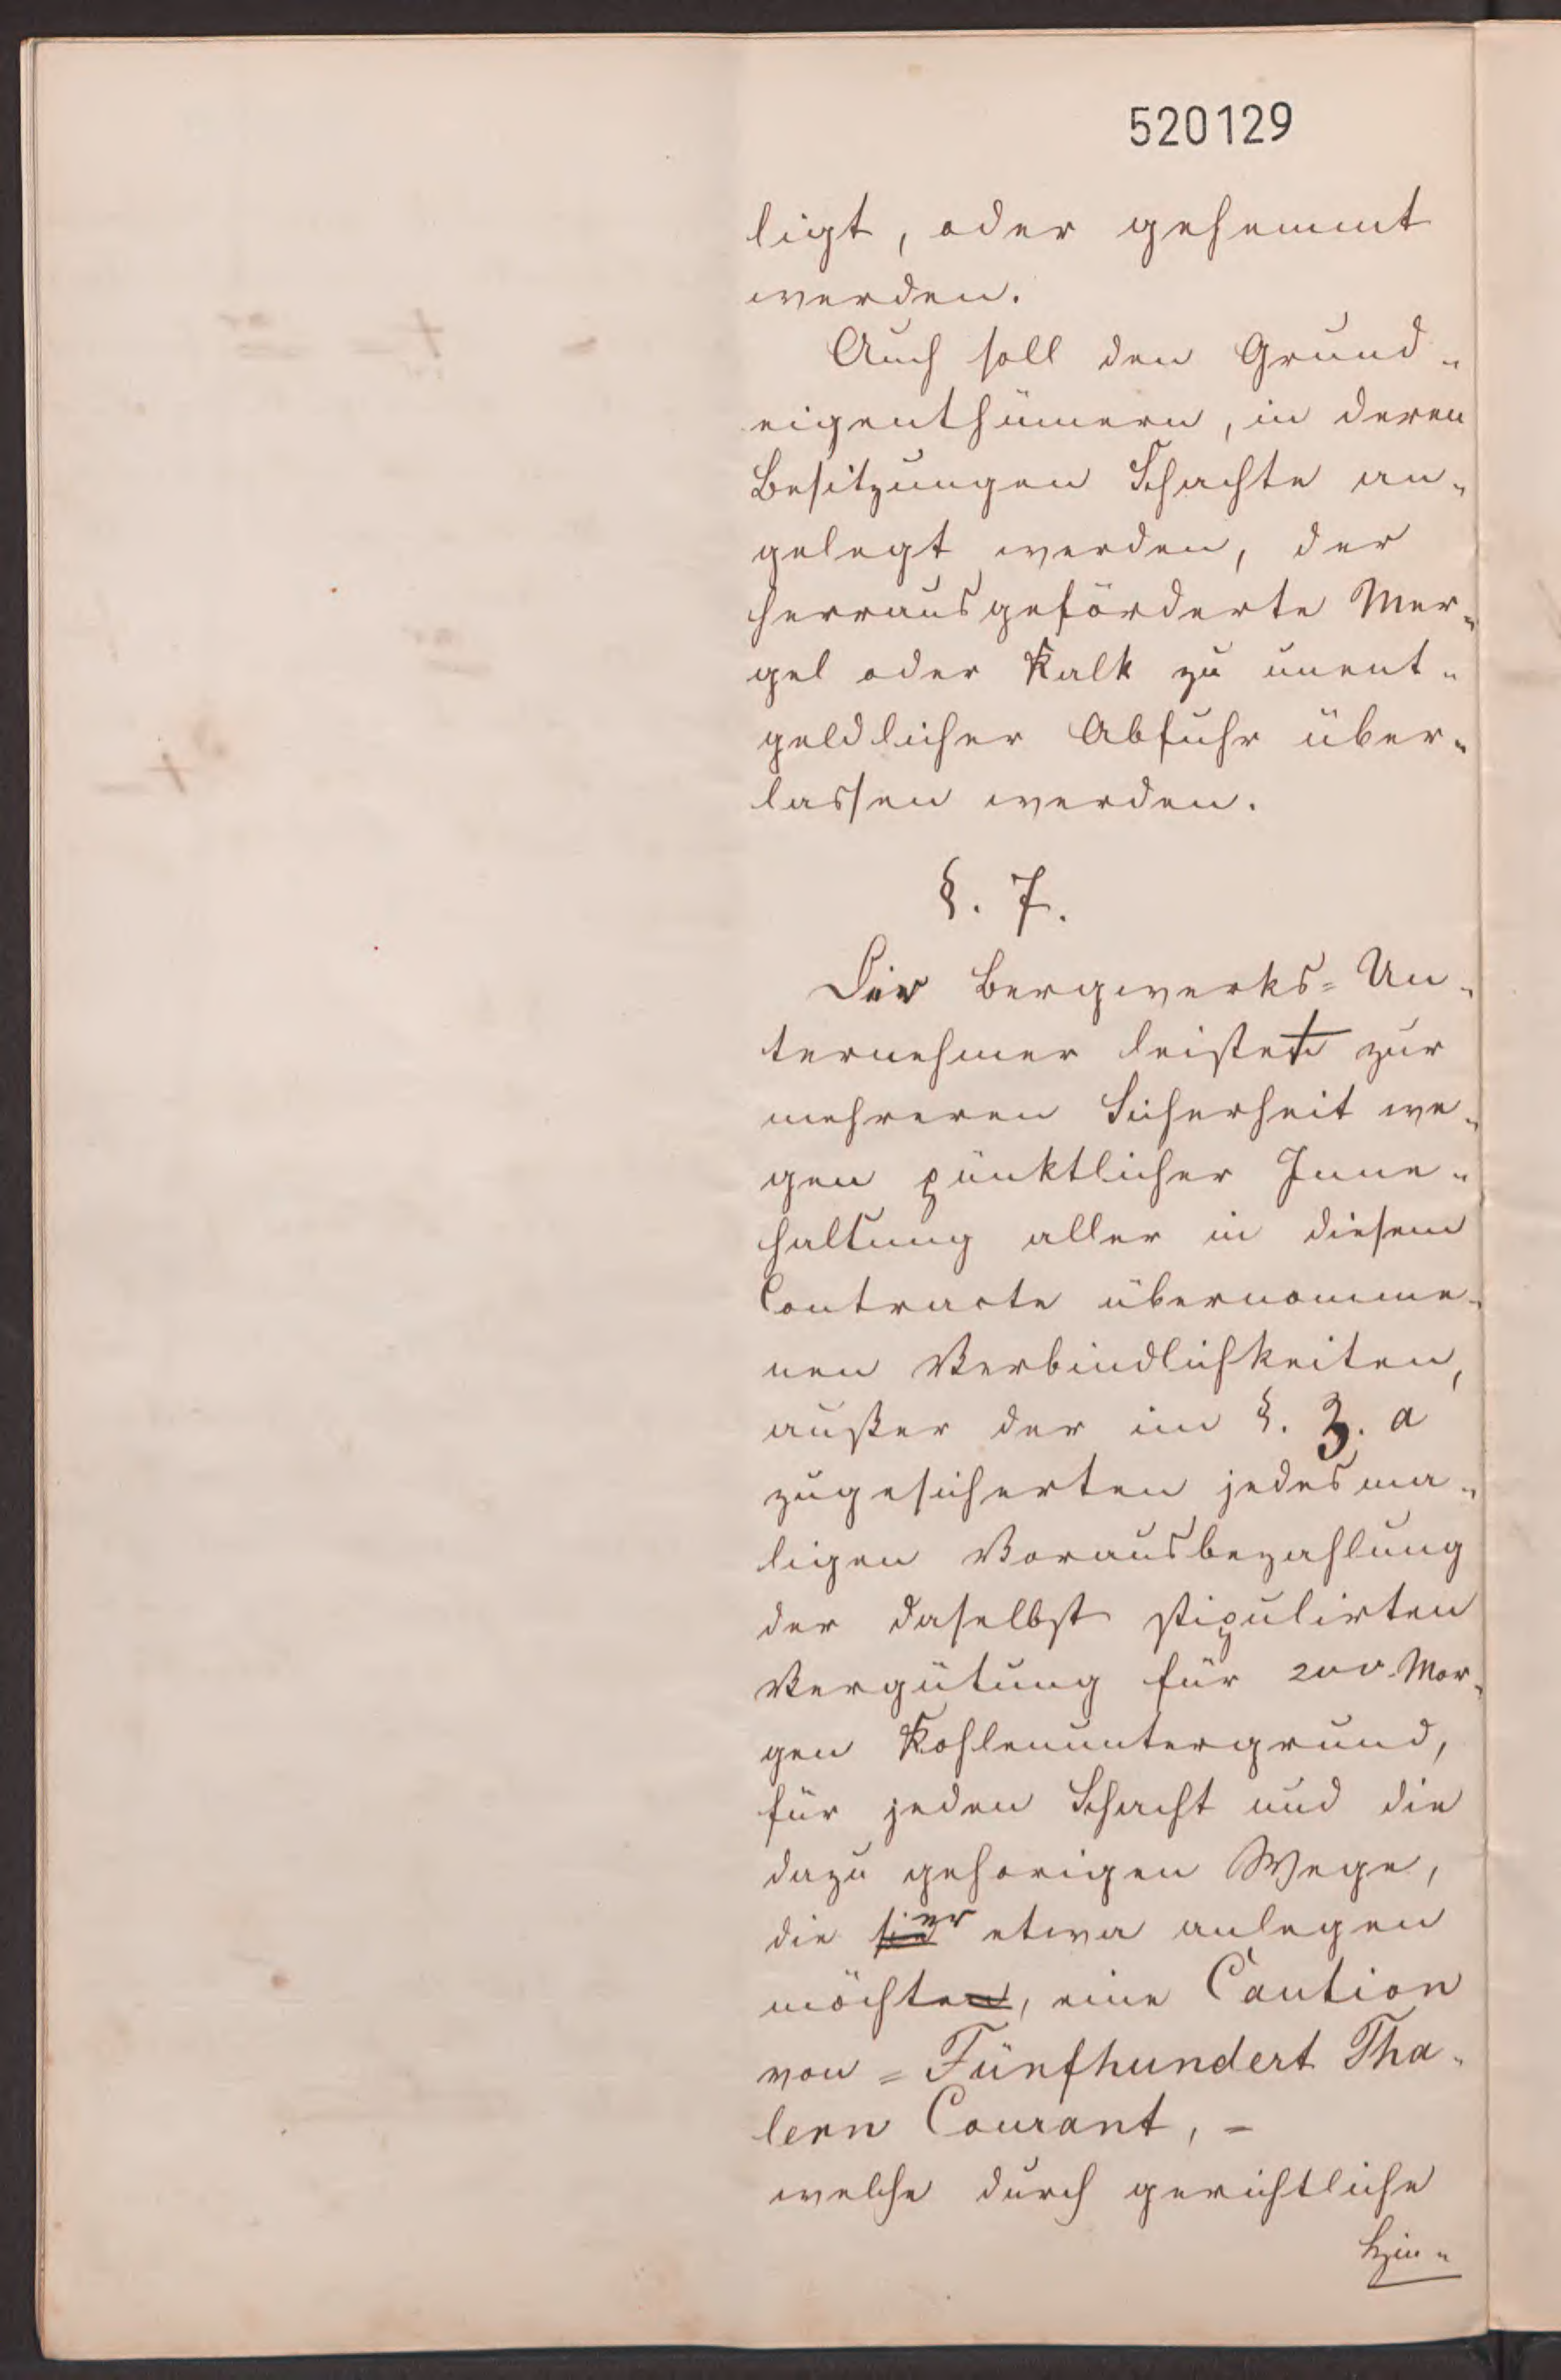 520129
ligt, oder gehemmt
werden.
Auch soll den Grund-
eigenthümern, in deren
Besitzungen Schachte an-
gelegt werden, der
herrausgeförderte Mer-
gel oder Kalk zu unent-
geldlicher Abfuhr über-
lassen werden.
§. 7.
Der Bergwerks-Un-
ternehmer leistet zur
mehreren Sicherheit we-
gen pünktlicher Inne-
haltung aller in diesem
Contracte übernomme-
nen Verbindlichkeiten,
außer der im §. 3. a
zugesicherten jedesma-
ligen Vorausbezahlung
der daselbst stipulirten
Vergütung für 200 Mor-
gen Kohlenuntergrund,
für jeden Schacht und die
dazu gehorigen Wege,
die sie er etwa anlegen
möchten, eine Caution
von = Fünfhundert Tha-
lern Courant, =
welche durch gerichtliche
Hin-